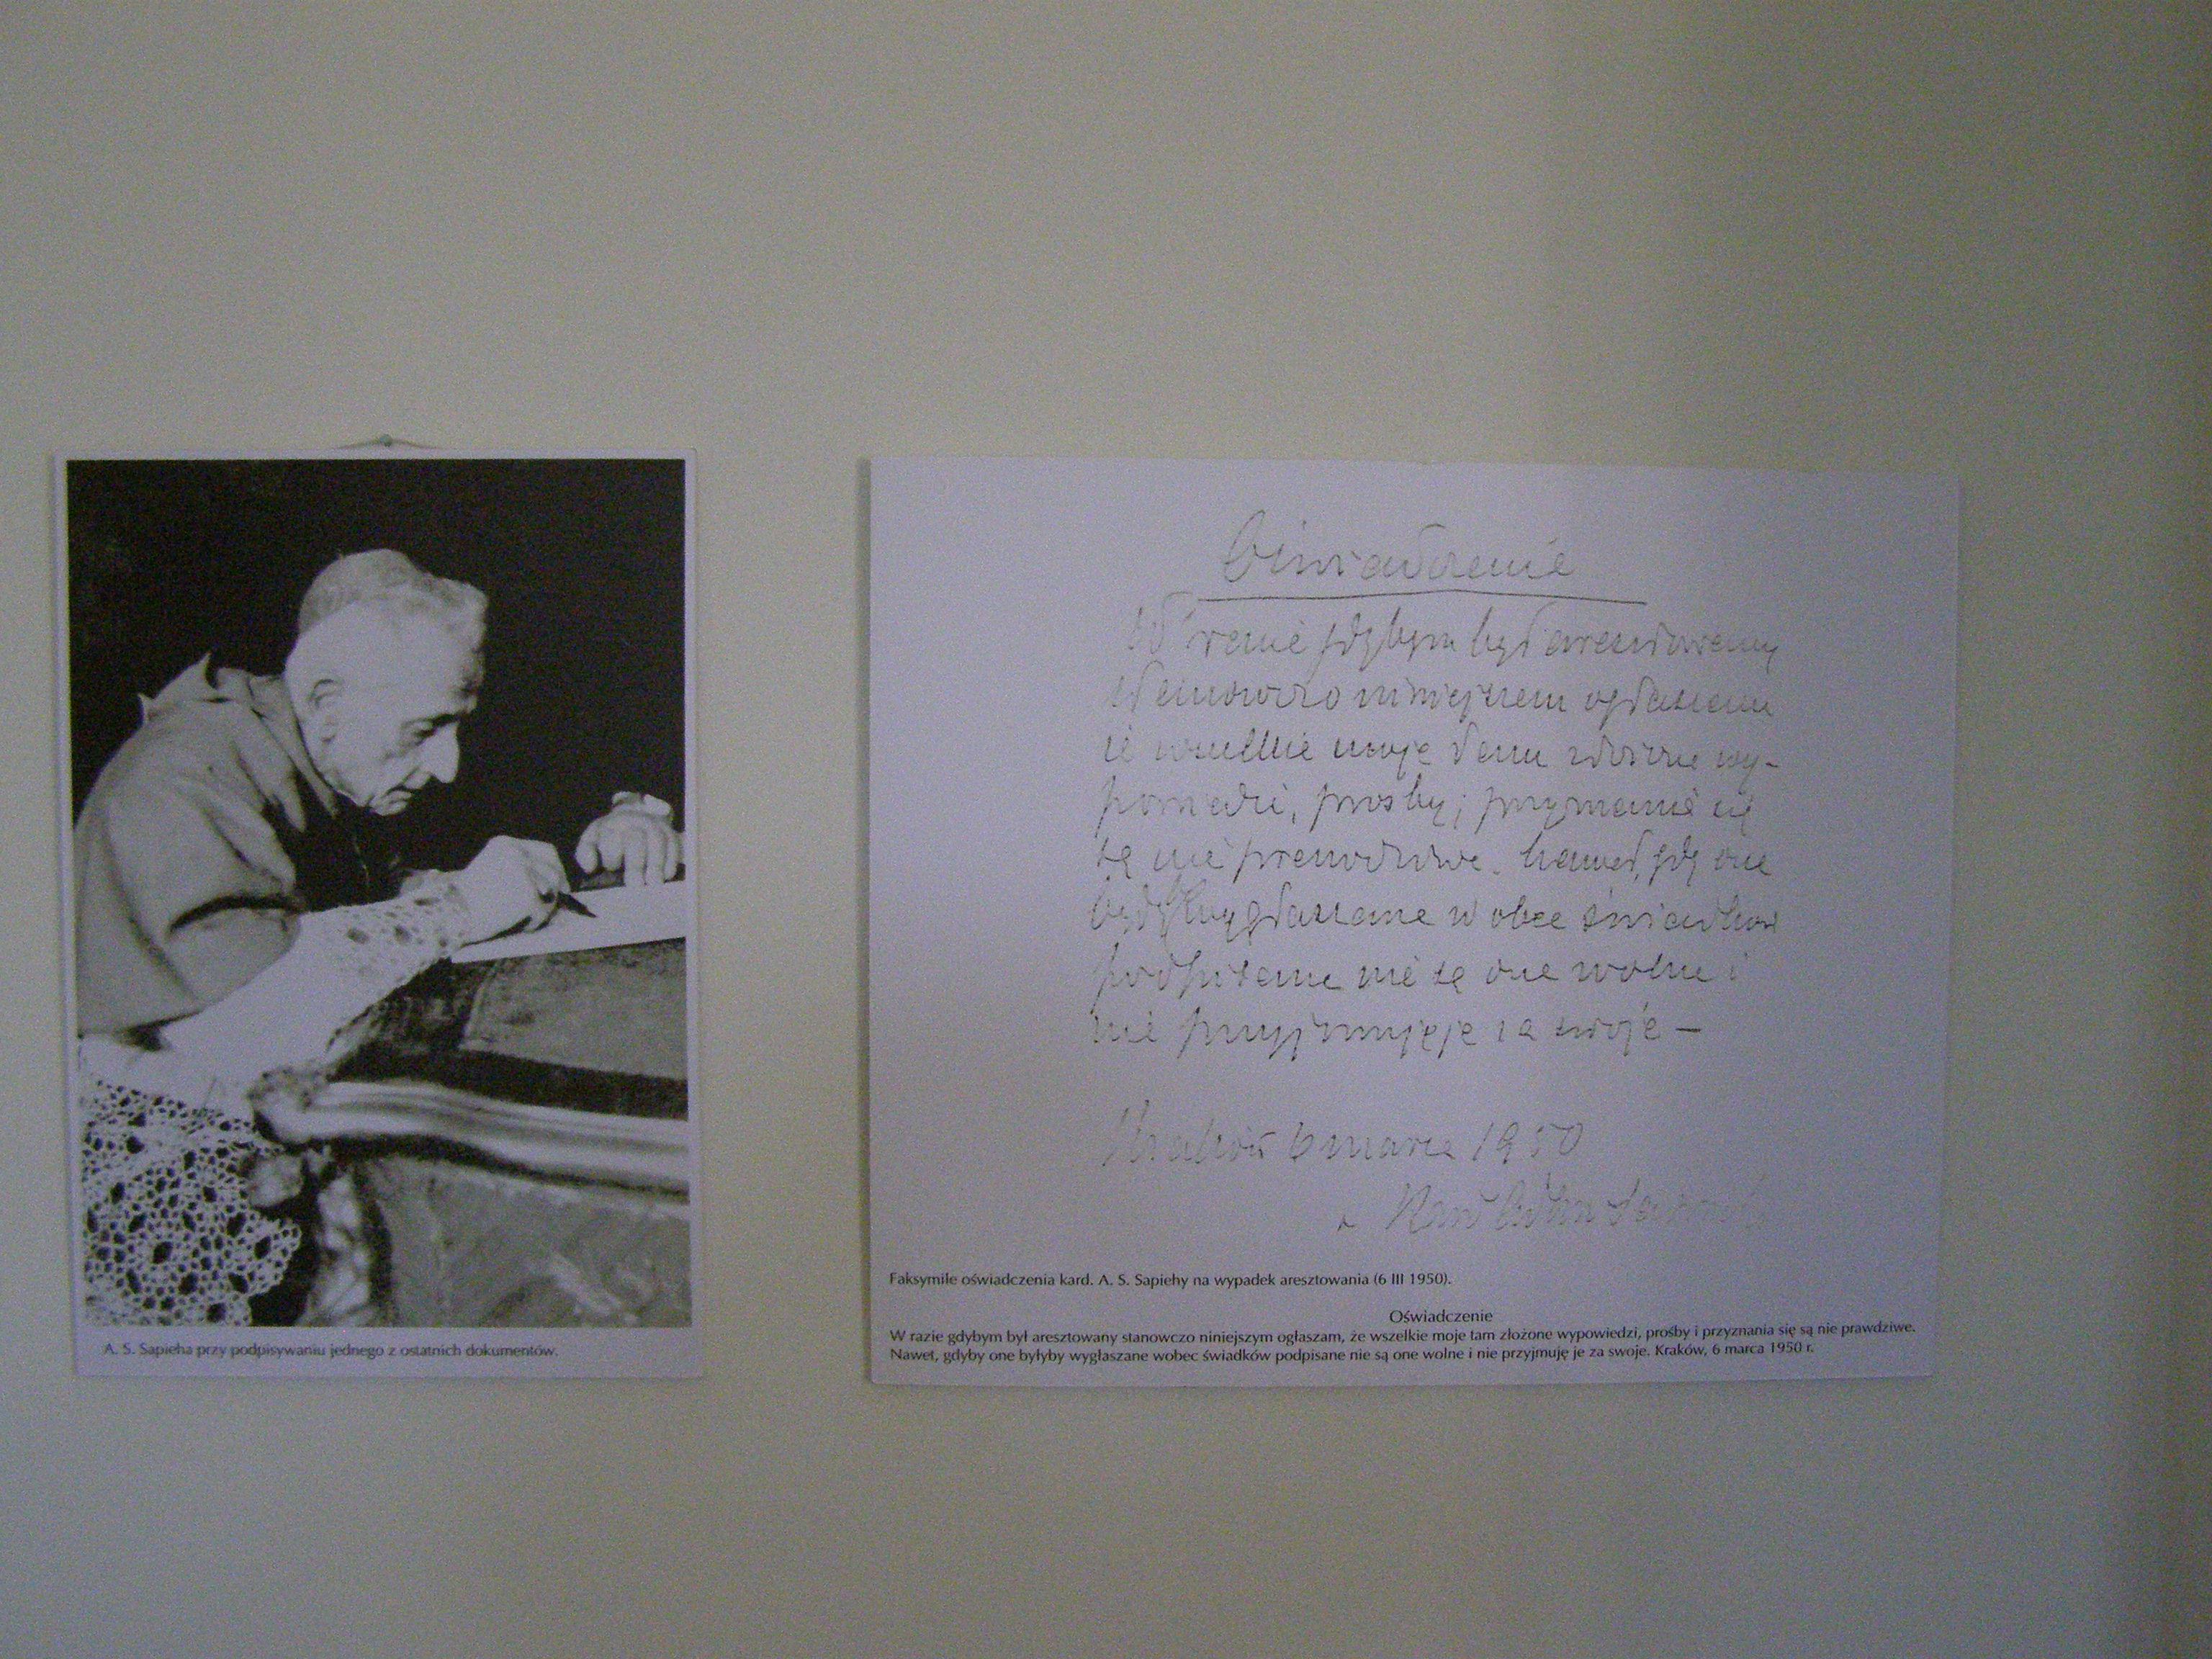 A. S. Sapieha przy podpisywaniu jednego z ostatnich dokumentów.
Oświadczenie
W razie gdybym był aresztowany
stanowczo niniejszem ogłaszam
że wszelkie moje tam złożone wy-
powiedzi, prośby i przyznanie się
są nie prawdziwe. Nawet, gdy one
wygłaszane wobec świadków
podpisane nie są one wolne i
nie przyjmuję je za swoje —
Kraków 6 marca 1950
Kard Adam
Faksymile oświadczenia kard. A. S. Sapiehy na wypadek aresztowania (6 III 1950).
Oświadczenie
W razie gdybym był aresztowany stanowczo niniejszym ogłaszam, że wszelkie moje tam złożone wypowiedzi, prośby i przyznania się są nie prawdziwe.
Nawet, gdyby one byłyby wygłaszane wobec świadków podpisane nie są one wolne i nie przyjmuję je za swoje. Kraków, 6 marca 1950 r.